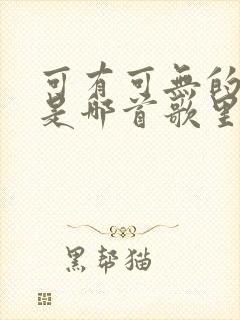 可有可无的
是那首歌里
黑帮猫